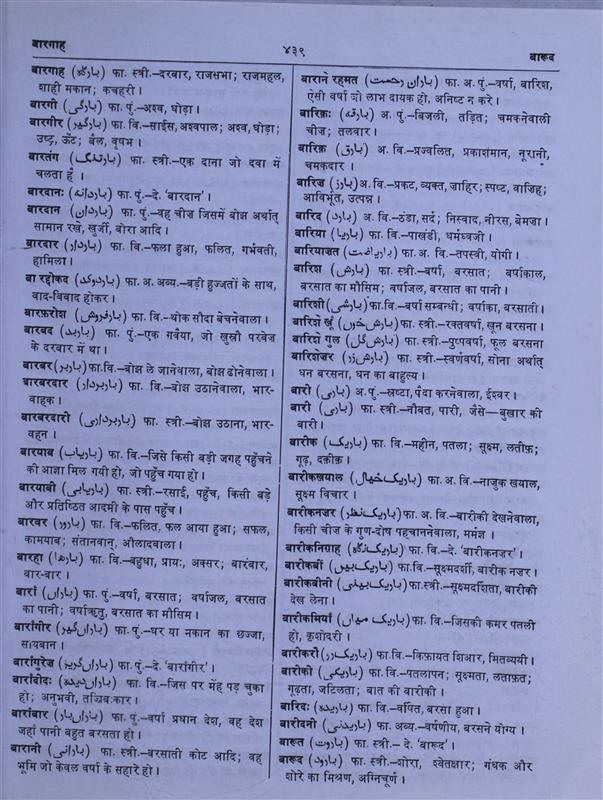 बारगाह
४३९
बारूद
बारगाह (بارگاہ) फा. स्त्री.–दरबार, राजसभा; राजमहल,
शाही मकान; कचहरी।
बारगी (بارگی) फा. पुं.–अश्व, घोड़ा।
बारगीर (بارگیر) फा. वि.–साईस, अश्वपाल; अश्व, घोड़ा;
उष्ट्र, ऊँट; बैल, वृषभ।
बारतंग (بارتنگ) फा. स्त्री.–एक दाना जो दवा में
चलता है।
बारदानः (باردانہ) फा.पुं.–दे. 'बारदान'।
बारदान (باردان) फा. पुं.–वह चीज जिसमें बोझ अर्थात्
सामान रखे, खुर्जी, बोरा आदि।
बारदार (باردار) फा. वि.–फला हुआ, फलित, गर्भवती,
हामिला।
बा रद्दोकद (باردوکد) फा. अ. अव्य.–बड़ी हुज्जतों के साथ,
वाद-विवाद होकर।
बारफ़रोश (بارفروش) फा. वि.–थोक सौदा बेचनेवाला।
बारबद (باربد) फा. पुं.–एक गवैया, जो खुस्रौ परवेज
के दरबार में था।
बारबर (باربر) फा. वि.–बोझ ले जानेवाला, बोझ ढोनेवाला।
बारबरदार (باربردار) फा. वि.–बोझ उठानेवाला, भार-
वाहक।
बारबरदारी (باربرداری) फा. स्त्री.–बोझ उठाना, भार-
वहन।
बारयाब (باریاب) फा. वि.–जिसे किसी बड़ी जगह पहुँचने
की आज्ञा मिल गयी हो, जो पहुँच गया हो।
बारयाबी (باریابی) फा. स्त्री.–रसाई, पहुँच, किसी बड़े
और प्रतिष्ठित आदमी के पास पहुँच।
बारवर (بارور) फा. वि.–फलित, फल आया हुआ; सफल,
कामयाब; संतानवान्, औलादवाला।
बारहा (بارها) फा. वि.–बहुधा, प्रायः, अक्सर; बारंबार,
बार-बार।
बारां (باراں) फा. पुं.–वर्षा, बरसात; वर्षाजल, बरसात
का पानी; वर्षाऋतु, बरसात का मौसिम।
बारांगीर (باراں گیر) फा. पुं.–घर या मकान का छज्जा,
सायबान।
बारांगुरेज (باراں گریز) फा. पुं.–दे. 'बारांगीर'।
बारांदीदः (باراں دیدہ) फा. वि.–जिस पर मेंह पड़ चुका
हो; अनुभवी, तज्रिबःकार।
बारांबार (باراں بار) फा. पुं.–वर्षा प्रधान देश, वह देश
जहां पानी बहुत बरसता हो।
बारानी (بارانی) फा. स्त्री.–बरसाती कोट आदि; वह
भूमि जो केवल वर्षा के सहारे हो।
बाराने रहमत (باران رحمت) फा. अ. पुं.–वर्षा, बारिश,
ऐसी वर्षा जो लाभ दायक हो, अनिष्ट न करे।
बारिक़ः (بارقہ) अ. पुं.–बिजली, तड़ित; चमकनेवाली
चीज; तलवार।
बारिक़ (بارق) अ. वि.–प्रज्वलित, प्रकाशमान, नूरानी,
चमकदार।
बारिज (بارز) अ. वि.–प्रकट, व्यक्त, जाहिर; स्पष्ट, वाजिह;
आविर्भूत, उत्पन्न।
बारिद (بارد) अ. वि.–ठंडा, सर्द; निस्वाद, नीरस, बेमजा।
बारिया (باریا) फा. वि.–पाखंडी, धर्मध्वजी।
बारियाजत (باریاضت) फा. अ. वि.–तपस्वी, योगी।
बारिश (بارش) फा. स्त्री.–वर्षा, बरसात; वर्षाकाल,
बरसात का मौसिम; वर्षाजल, बरसात का पानी।
बारिशी (بارشی) फा. वि.–वर्षा सम्बन्धी; वर्षाका, बरसाती।
बारिशे खूं (بارش خون) फा. स्त्री.–रक्तवर्षा, खून बरसना।
बारिशे गुल (بارش گل) फा. स्त्री.–पुष्पवर्षा, फूल बरसना
बारिशेज़र (بارش زر) फा. स्त्री.–स्वर्णवर्षा, सोना अर्थात्
धन बरसना, धन का बाहुल्य।
बारी (باری) अ. पुं.–स्रष्टा, पैदा करनेवाला, ईश्वर।
बारी (باری) फा. स्त्री.–नौबत, पारी, जैसे–बुखार की
बारी।
बारीक (باریک) फा. वि.–महीन, पतला; सूक्ष्म, लतीफ़;
गूढ़, दक़ीक़।
बारीकख़याल (باریک خیال) फा. अ. वि.–नाजुक ख़याल,
सूक्ष्म विचार।
बारीकनजर (باریک نظر) फा. अ. वि.–बारीकी देखनेवाला,
किसी चीज के गुण-दोष पहचाननेवाला, मर्मज्ञ।
बारीकनिगाह (باریک نگاہ) फा. वि.–दे. 'बारीकनजर'।
बारीकबीं (باریک بیں) फा. वि.–सूक्ष्मदर्शी, बारीक नजर।
बारीकबीनी (باریک بینی) फा.स्त्री.–सूक्ष्मदर्शिता, बारीकी
देख लेना।
बारीकमियाँ (باریک میاں) फा. वि.–जिसकी कमर पतली
हो, कृशोदरी।
बारीकरौ (باریک رو) फा. वि.–किफ़ायत शिआर, मितव्ययी।
बारीकी (باریکی) फा. वि.–पतलापन; सूक्ष्मता, लताफ़त;
गूढ़ता, जटिलता; बात की बारीकी।
बारिदः (باریدہ) फा. वि.–वर्षित, बरसा हुआ।
बारीदनी (باریدنی) फा. अव्य.–वर्षणीय, बरसने योग्य।
बारूत (باروت) फा. स्त्री.–दे. 'बारूद'।
बारूद (بارود) फा. स्त्री.–शोरा, श्वेतक्षार; गंधक और
शोरे का मिश्रण, अग्निचूर्ण।